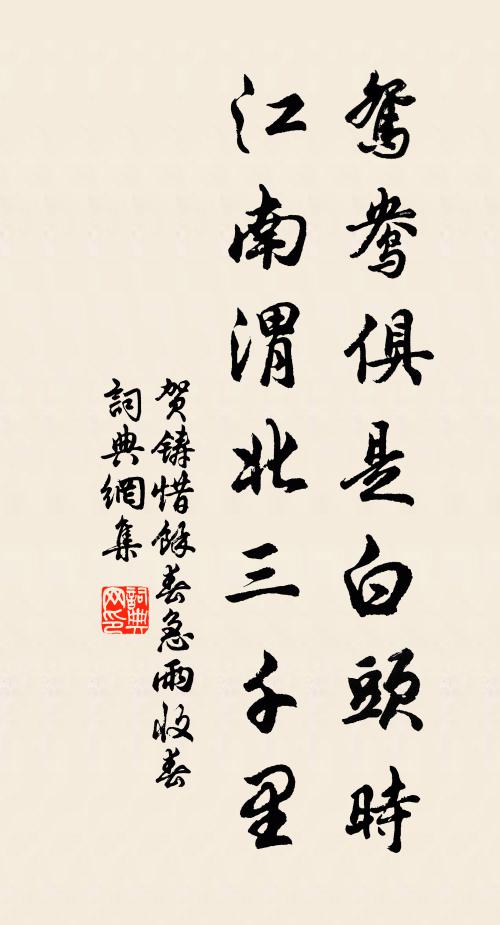 鴛鴦俱是白頭時
江南渭北三千里
賀鑄惜餘春急雨收春
詞典網集
詞典网印